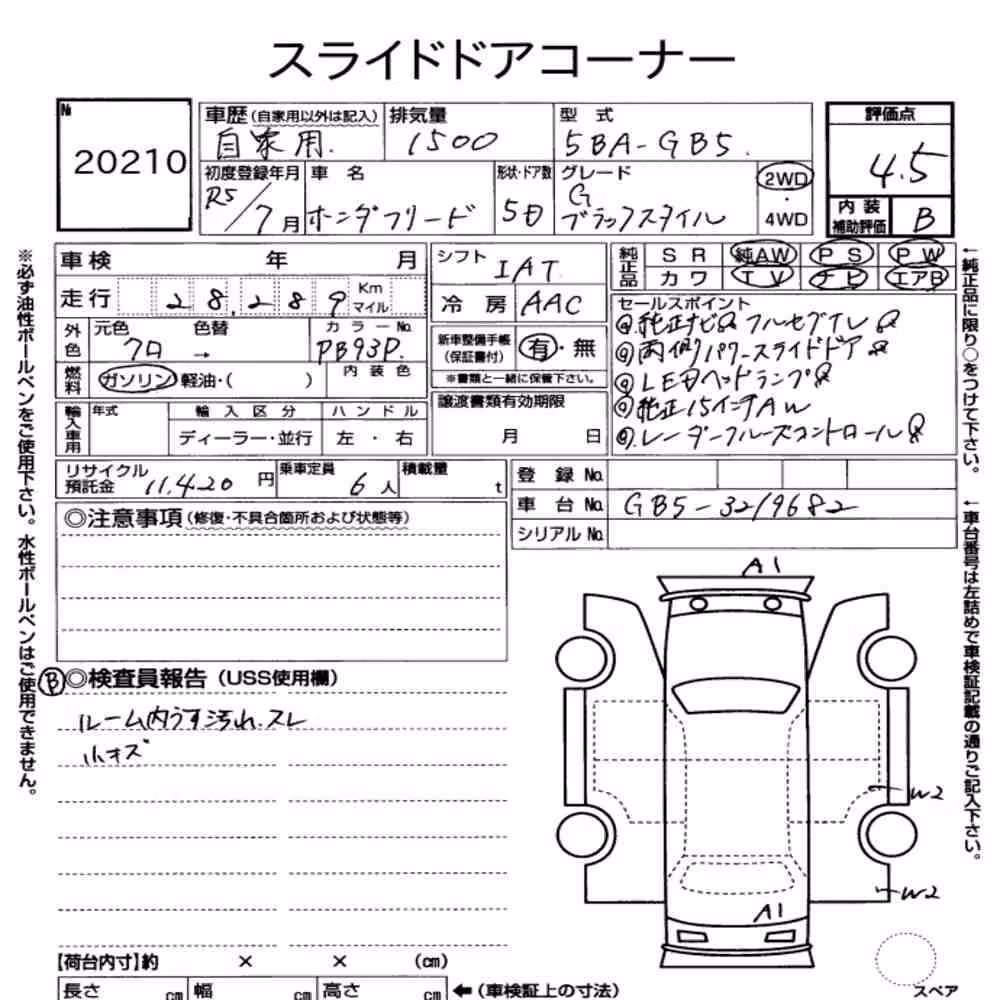 スライドドアコーナー
№ 20210
車歴(自家用以外は記入) 自家用.
排気量 1500
型式 5BA-GB5.
評価点 4.5
初度登録年月 R5/7月
車名 ホンダフリード
形状・ドア数 5D
グレード G ブラックスタイル
2WD・4WD
内装補助評価 B
車検 年 月
シフト IAT
純正品 SR 純AW PS PW
カワ TV ナビ エアB
走行 28,289 Km マイル
冷房 AAC
セールスポイント
純正ナビ フルセグTV
両側パワースライドドア
LEDヘッドランプ
純正15インチAW
レーダークルーズコントロール
外色 元色 クロ → 色替
カラーNo. PB93P.
新車整備手帳(保証書付) 有・無
燃料 ガソリン 軽油・( )
内装色
※書類と一緒に保管下さい。
輸入車用 年式 輸入区分 ハンドル
ディーラー・並行 左・右
譲渡書類有効期限
月 日
リサイクル預託金 11,420円
乗車定員 6人
積載量 t
登録No.
車台No. GB5-3219682
シリアルNo.
◎注意事項(修復・不具合箇所および状態等)
A1
B ◎検査員報告(USS使用欄)
ルーム内うす汚れ.スレ
小キズ
W2
W2
A1
【荷台内寸】約 × × (cm)
長さ cm 幅 cm 高さ cm ←(車検証上の寸法)
スペア
※必ず油性ボールペンをご使用下さい。水性ボールペンはご使用できません。
←純正品に限り○をつけて下さい。
←車台番号は左詰めで車検証記載の通りご記入下さい。